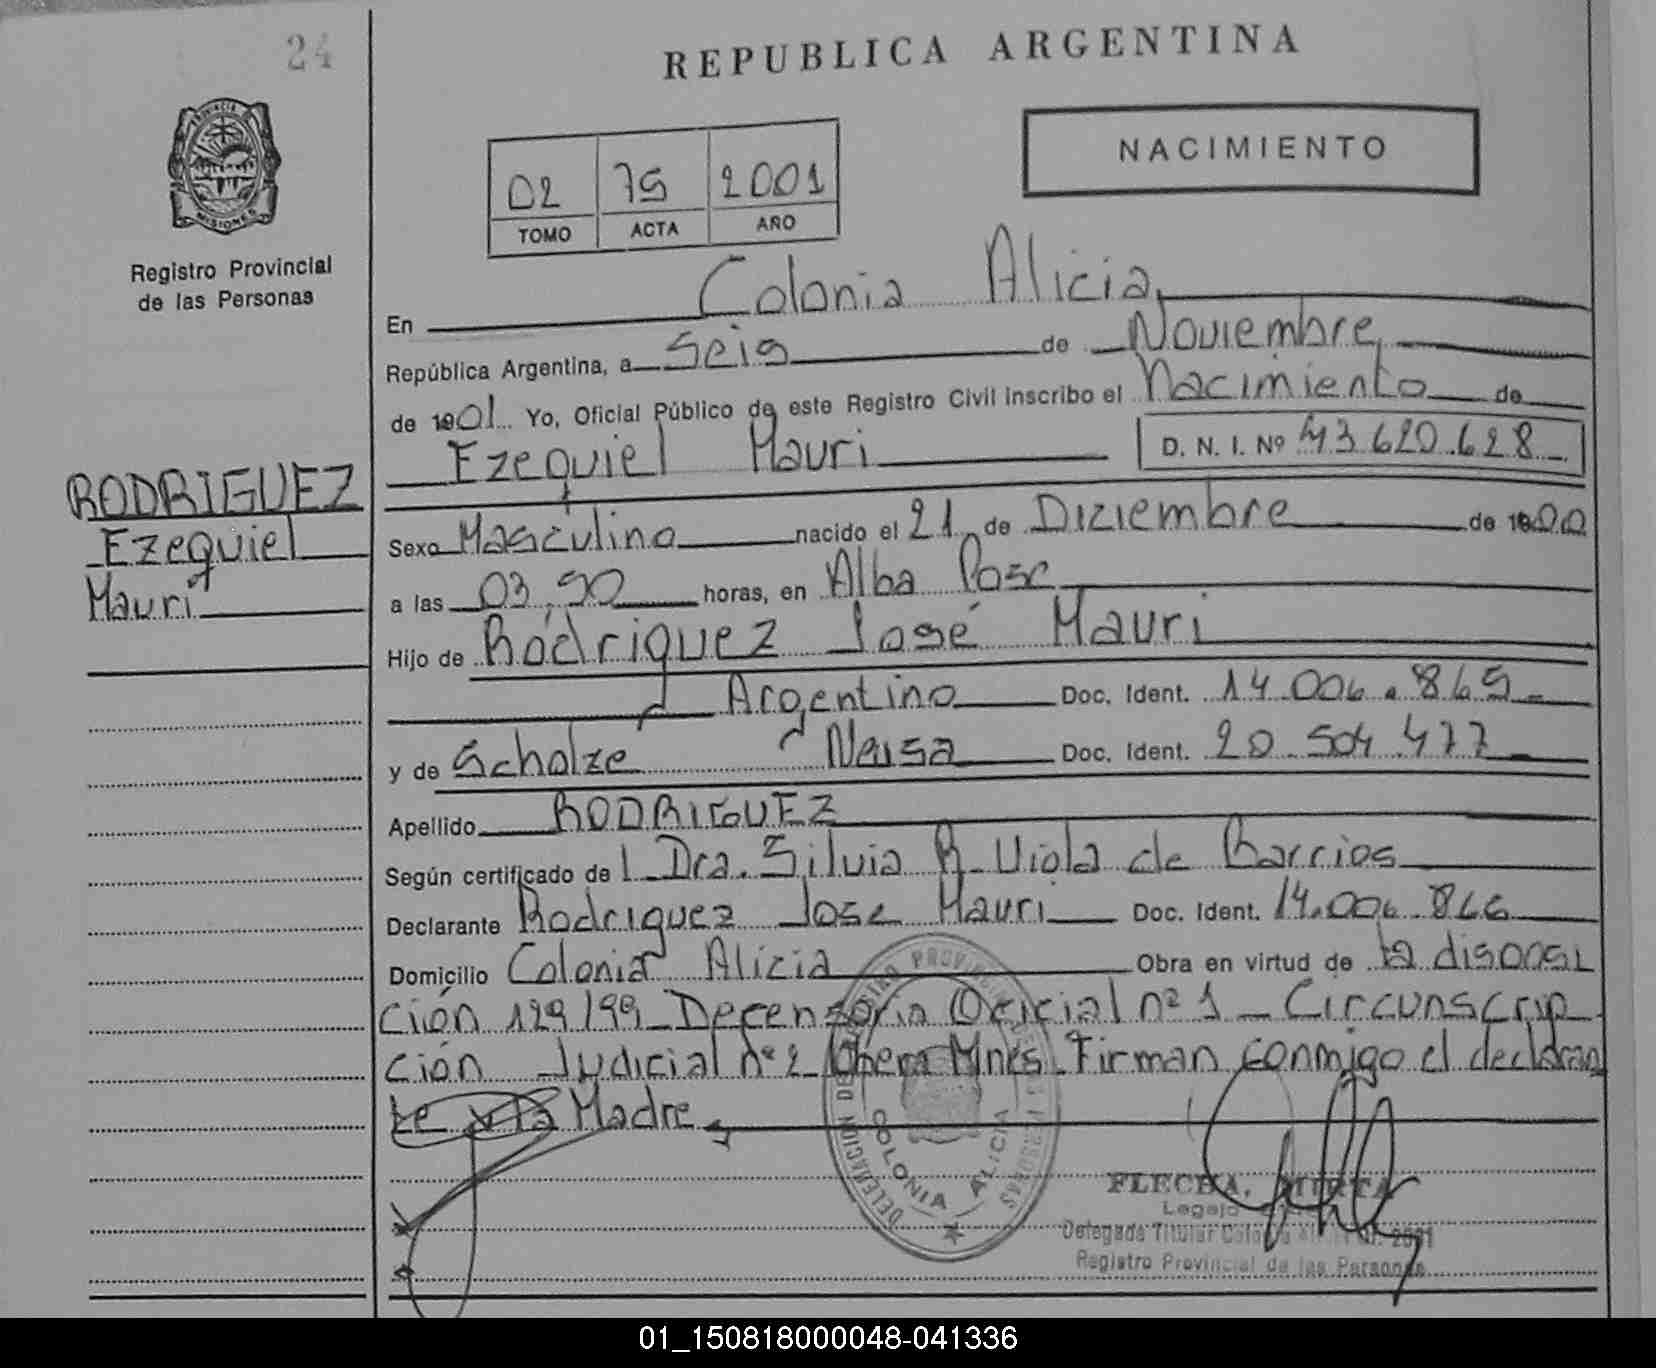 24
REPUBLICA ARGENTINA
PROVINCIA
MISIONES
Registro Provincial
de las Personas
NACIMIENTO
02 75 2001
TOMO ACTA AÑO
En Colonia Alicia
República Argentina, a Seis de Noviembre
de 1901 Yo, Oficial Público de este Registro Civil inscribo el Nacimiento de
Ezequiel Mauri D. N. I. Nº 43 620.628
RODRIGUEZ
Ezequiel
Mauri
Sexo Masculino nacido el 21 de Diziembre de 1900
a las 03,50 horas, en Alba Pose
Hijo de Rodriguez José Mauri
Argentino Doc. Ident. 14.006.865
y de Scholze Neusa Doc. Ident. 20.504.477
Apellido RODRIGUEZ
Según certificado de l Dra. Silvia R. Viola de Barrios
Declarante Rodriguez Jose Mauri Doc. Ident. 14.006.866
Domicilio Colonia Alicia Obra en virtud de la disposi
ción 129/99 Defensoria Oficial nº 1 - Circunscrip
ción Judicial nº 2 Obera Mnes. Firman conmigo el declaran
te y la Madre
COLONIA ALICIA
FLECHA, MIRTA
Legajo
Delegada Titular Colonia
Registro Provincial de las Personas
01_150818000048-041336